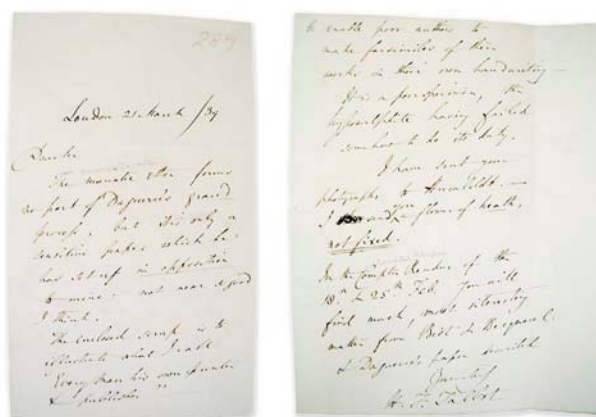 London 21 March /39
Dear Sir
The muriatic ether forms
no part of Daguerre's grand
process, but it is only a
sensitive paper which he
has set up in opposition
to mine, not near so good
I think.
The enclosed scrap is to
illustrate what I call
"Every man his own printer
& publisher"
to enable poor authors to
make facsimiles of their
works in their own handwriting—
It is a poor specimen, the
hyposulphite having failed
somehow to do its duty.
I have sent your
photographs to
I send you a flower of heath,
not fixed.
In the Comptes Rendus of the
18th & 25th Feb. you will
find much, most interesting
matter from Biot & Becquerel
& Daguerre's paper described
Yours
H. F. Talbot